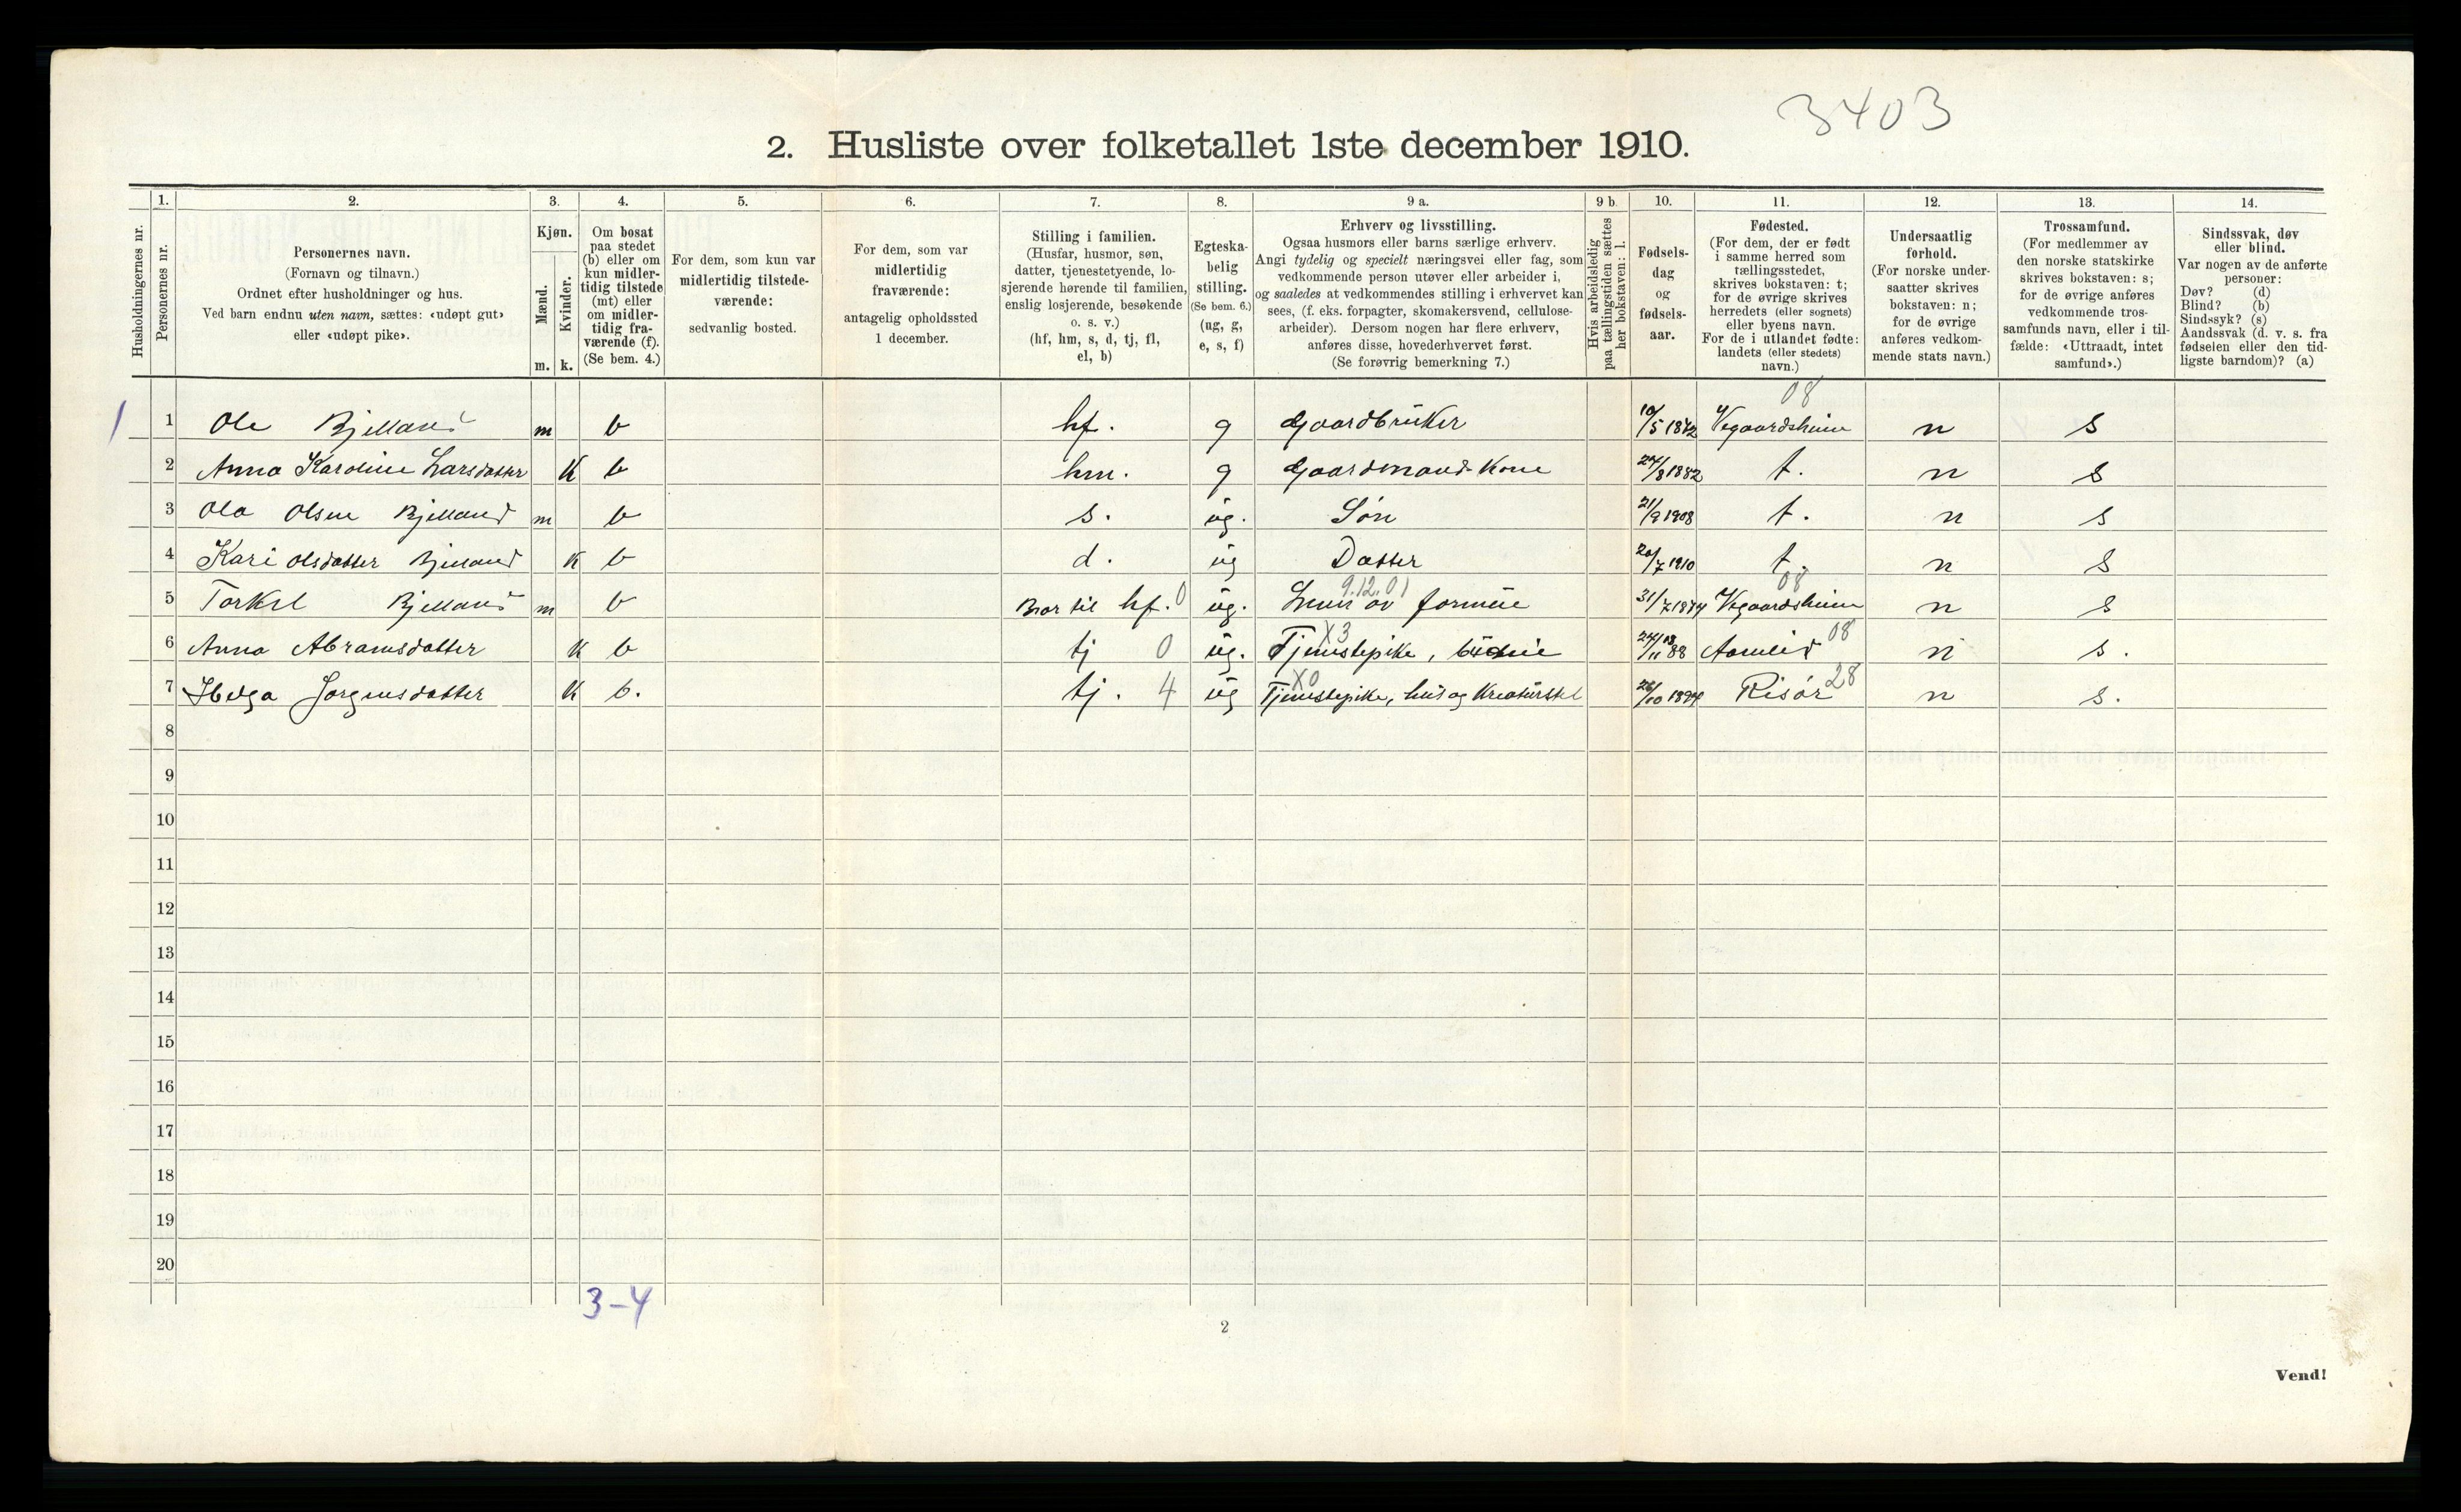 3403
2. Husliste over folketallet 1ste december 1910.
Husholdningernes nr.
1.
Personernes nr.
2.
Personernes navn.
(Fornavn og tilnavn.)
Ordnet efter husholdninger og hus.
Ved barn endnu uten navn, sættes: «udøpt gut»
eller «udøpt pike».
3.
Kjøn.
Mænd.
Kvinder.
m. k.
4.
Om bosat
paa stedet
(b) eller om
kun midler-
tidig tilstede
(mt) eller
om midler-
tidig fra-
værende (f).
(Se bem. 4.)
5.
For dem, som kun var
midlertidig tilstede-
værende:
sedvanlig bosted.
6.
For dem, som var
midlertidig
fraværende:
antagelig opholdssted
1 december.
7.
Stilling i familien.
(Husfar, husmor, søn,
datter, tjenestetyende, lo-
sjerende hørende til familien,
enslig losjerende, besøkende
o. s. v.)
(hf, hm, s, d, tj, fl,
el, b)
8.
Egteska-
belig
stilling.
(Se bem. 6.)
(ug, g,
e, s, f)
9 a.
Erhverv og livsstilling.
Ogsaa husmors eller barns særlige erhverv.
Angi tydelig og specielt næringsvei eller fag, som
vedkommende person utøver eller arbeider i,
og saaledes at vedkommendes stilling i erhvervet kan
sees, (f. eks. forpagter, skomakersvend, cellulose-
arbeider). Dersom nogen har flere erhverv,
anføres disse, hovederhvervet først.
(Se forøvrig bemerkning 7.)
9 b.
Hvis arbeidsledig
paa tællingstiden sættes
her bokstaven: l.
10.
Fødsels-
dag
og
fødsels-
aar.
11.
Fødested.
(For dem, der er født
i samme herred som
tællingsstedet,
skrives bokstaven: t;
for de øvrige skrives
herredets (eller sognets)
eller byens navn.
For de i utlandet fødte:
landets (eller stedets)
navn.)
12.
Undersaatlig
forhold.
(For norske under-
saatter skrives
bokstaven: n;
for de øvrige
anføres vedkom-
mende stats navn.)
13.
Trossamfund.
(For medlemmer av
den norske statskirke
skrives bokstaven: s;
for de øvrige anføres
vedkommende tros-
samfunds navn, eller i til-
fælde: «Uttraadt, intet
samfund».)
14.
Sindssvak, døv
eller blind.
Var nogen av de anførte
personer:
Døv? (d)
Blind? (b)
Sindssyk? (s)
Aandssvak (d. v. s. fra
fødselen eller den tid-
ligste barndom)? (a)
08
1 1 Ole Bjelland m b hf. g Gaardbruker 10/5 1872 Vegaardsheim n s
2 Anna Karoline Larsdatter K b hm. g Gaardmand Kone 24/8 1882 t. n s
3 Ola Olsen Bjelland m b s. ug. Søn 21/9 1908 t. n s
4 Kari Olsdatter Bjelland K b d. ug Datter 20/7 1910 t. n s
9.12.01 08
5 Torkel Bjelland m b Bror til hf. 0 ug. Lever av formue 31/7 1874 Vegaardsheim n s
X3
6 Anna Abramsdatter K b tj 0 ug. Tjenestepike, budeie 24/11 1888 Aamlid 08 n s.
X0
7 Helga Jorgensdatter K b. tj. 4 ug Tjenestepike, hus og Kreaturstel 26/10 1894 Risør 28 n s.
8
9
10
11
12
13
14
15
16
17
18
19
20
3-4
2
Vend!